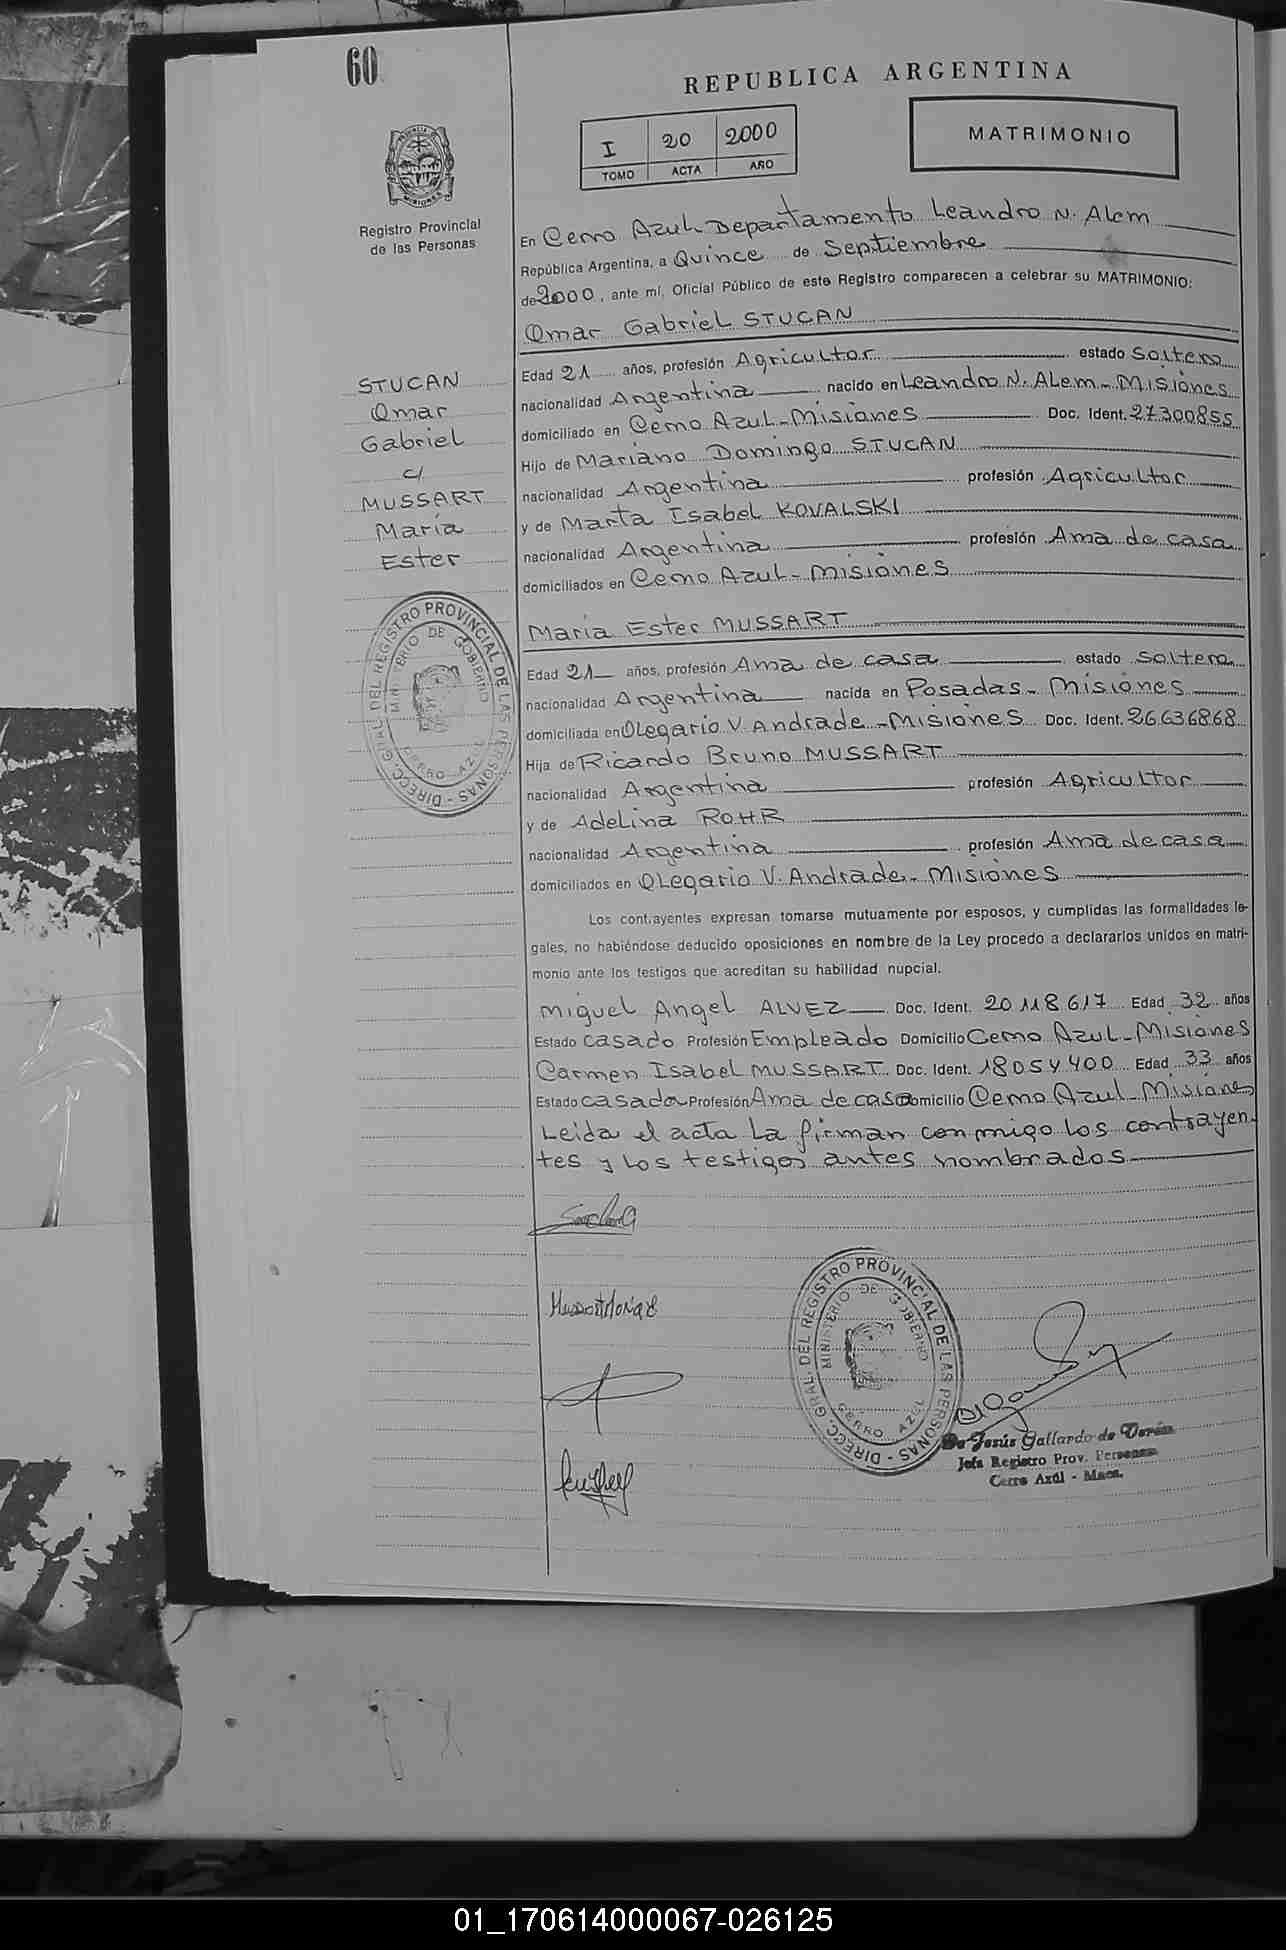 60
REPUBLICA ARGENTINA
I 20 2000
TOMO ACTA AÑO
MATRIMONIO
PROVINCIA DE MISIONES
Registro Provincial
de las Personas
STUCAN
Omar
Gabriel
c/
MUSSART
María
Ester
En Cerro Azul Departamento Leandro N. Alem
República Argentina, a Quince de Septiembre
de 2000, ante mí, Oficial Público de este Registro comparecen a celebrar su MATRIMONIO:
Omar Gabriel STUCAN
Edad 21 años, profesión Agricultor estado Soltero
nacionalidad Argentina nacido en Leandro N. Alem - Misiones
domiciliado en Cerro Azul - Misiones Doc. Ident. 27300855
Hijo de Mariano Domingo STUCAN
nacionalidad Argentina profesión Agricultor
y de Marta Isabel KOVALSKI
nacionalidad Argentina profesión Ama de casa
domiciliados en Cerro Azul - Misiones
María Ester MUSSART
Edad 21 años, profesión Ama de casa estado Soltera
nacionalidad Argentina nacida en Posadas - Misiones
domiciliada en Olegario V. Andrade - Misiones Doc. Ident. 26.636.868
Hija de Ricardo Bruno MUSSART
nacionalidad Argentina profesión Agricultor
y de Adelina ROHR
nacionalidad Argentina profesión Ama de casa
domiciliados en Olegario V. Andrade - Misiones
Los contrayentes expresan tomarse mutuamente por esposos, y cumplidas las formalidades le-
gales, no habiéndose deducido oposiciones en nombre de la Ley procedo a declararlos unidos en matri-
monio ante los testigos que acreditan su habilidad nupcial.
Miguel Angel ALVEZ Doc. Ident. 20.118.617 Edad 32 años
Estado Casado Profesión Empleado Domicilio Cerro Azul - Misiones
Carmen Isabel MUSSART Doc. Ident. 18054400 Edad 33 años
Estado Casada Profesión Ama de casa Domicilio Cerro Azul - Misiones
Leída el acta la firman conmigo los contrayen-
tes y los testigos antes nombrados
DIRECC. GRAL. DEL REGISTRO PROVINCIAL DE LAS PERSONAS
MINISTERIO DE GOBIERNO
CERRO AZUL
Mussart María E
DIRECC. GRAL. DEL REGISTRO PROVINCIAL DE LAS PERSONAS
MINISTERIO DE GOBIERNO
CERRO AZUL
De Jesús Gallardo de
Jefa Registro Prov. Personas
Cerro Azúl - Mnes.
01_170614000067-026125